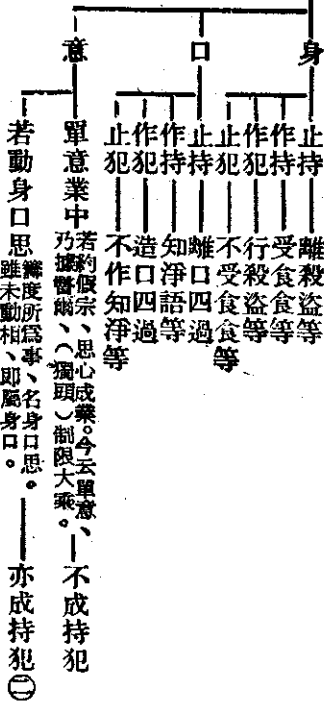 身
止持 離殺盜等
作持 受食食等
作犯 行殺盜等
止犯 不受食食等
口
止持 離口四過
作持 知淨語等
作犯 造口四過
止犯 不作知淨等
意
單意業中 若約假宗、思心成業。今云單意、
乃據瞥爾、(獨頭)制限大乘。
不成持犯
若動身口思 籌度所爲事、名身口思。
雖未動相、卽屬身口。
亦成持犯㊁